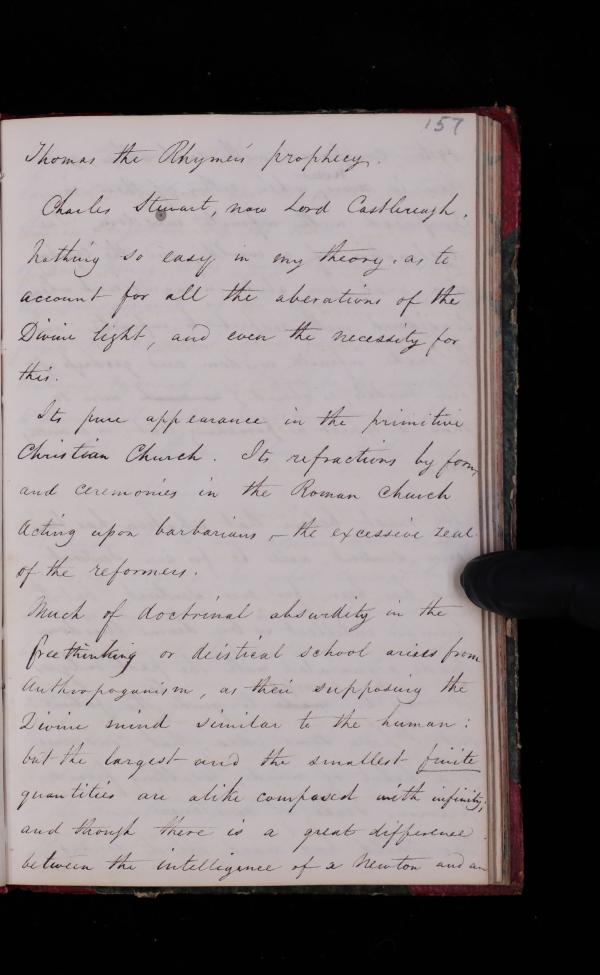 157
Thomas the Rhymer's prophecy.
Charles Stewart, now Lord Castlereagh.
Nothing so easy in my theory, as to
account for all the aberations of the
Divine light, and even the necessity for
this.
Its pure appearance in the primitive
Christian Church. Its refractions by forms
and ceremonies in the Roman church
Acting upon barbarians, – the excessive zeal
of the reformers.
Much of doctrinal absurdity in the
freethinking or deistical school arises from
Anthropoganism, as their supposing the
Divine mind similar to the human:
but the largest and the smallest finite
quantities are alike compared with infinity;
and though there is a great difference
between the intelligence of a Newton and an